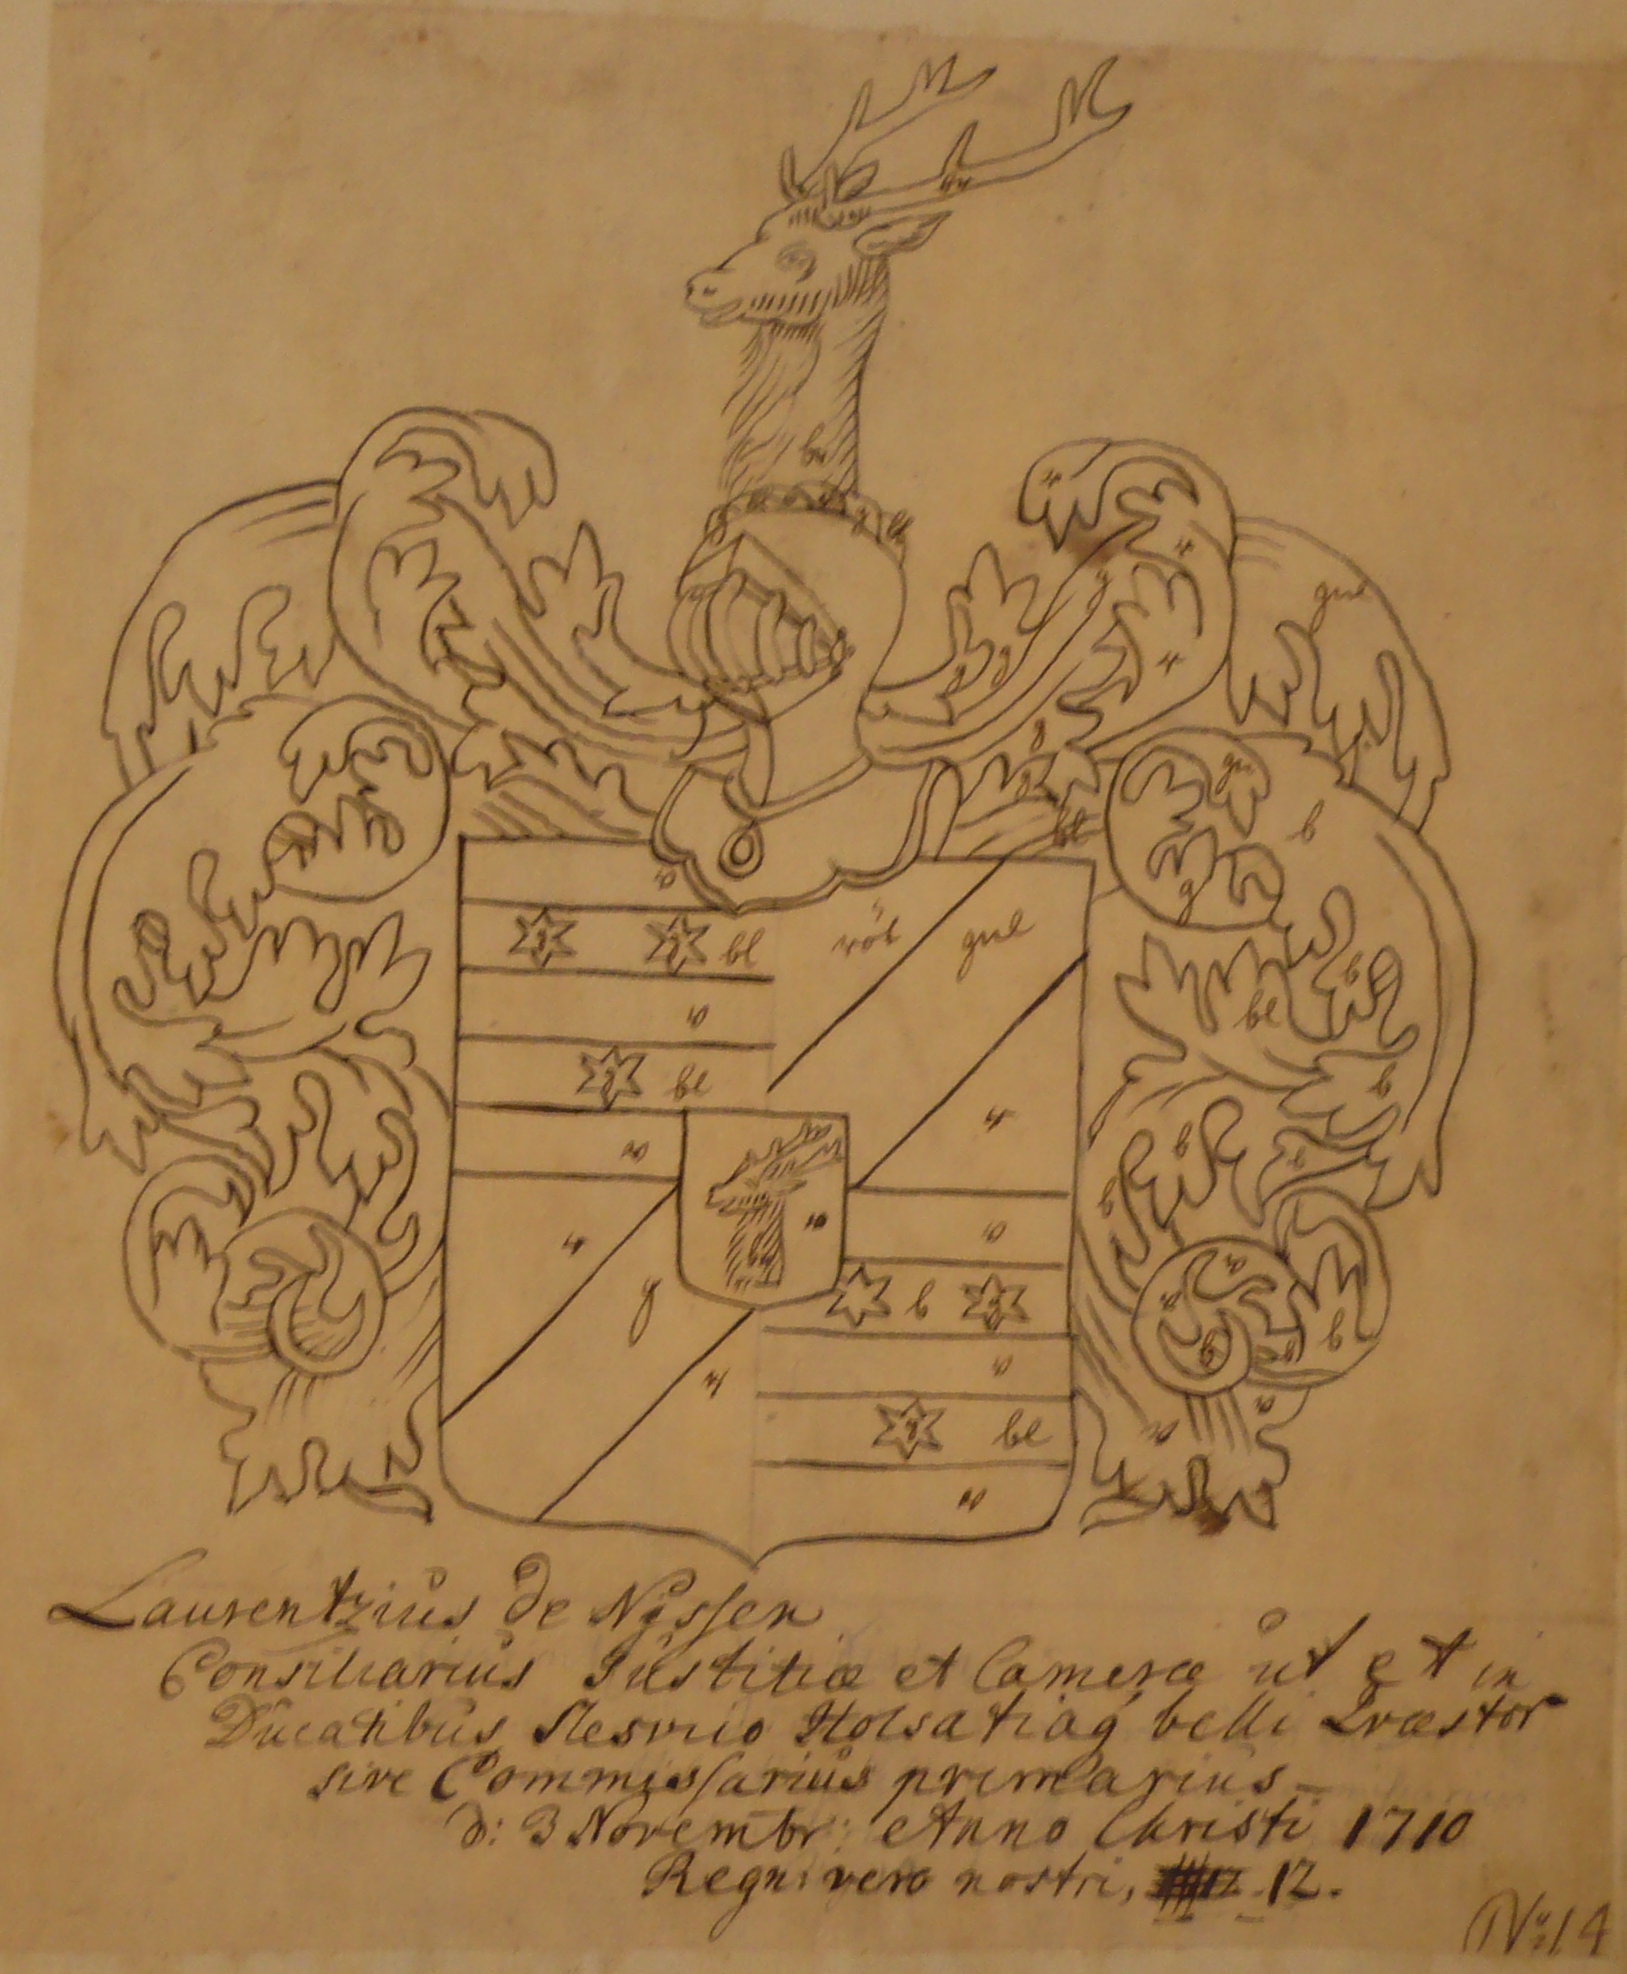 a
bl
röt gul
a
bl
a
r
r
g
a
br
r
a
b
a
bl
a
br
gul
bl
b
Laurentzius de Nissen
Consiliarius Justitiæ et Cameræ ut et in
Ducatibus Slesvico Holsatiaq belli Qvæstor
sive Commissarius primarius
d: 3 Novembr: Anno Christi 1710
Regni vero nostri, 12.
No: 14